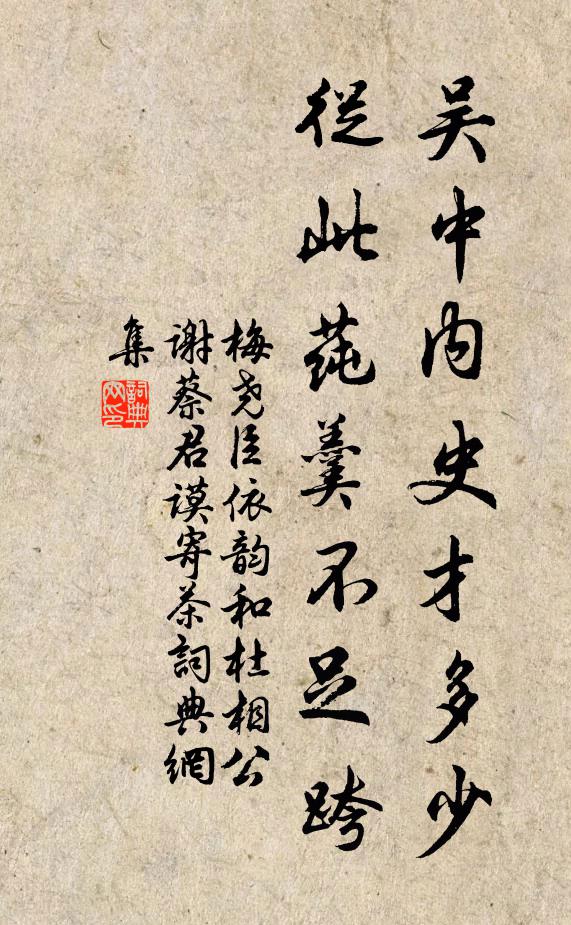 吴中内史才多少
従此莼羹不足跨
梅尧臣依韵和杜相公
谢蔡君谟寄茶詞典網
集
詞典
网印